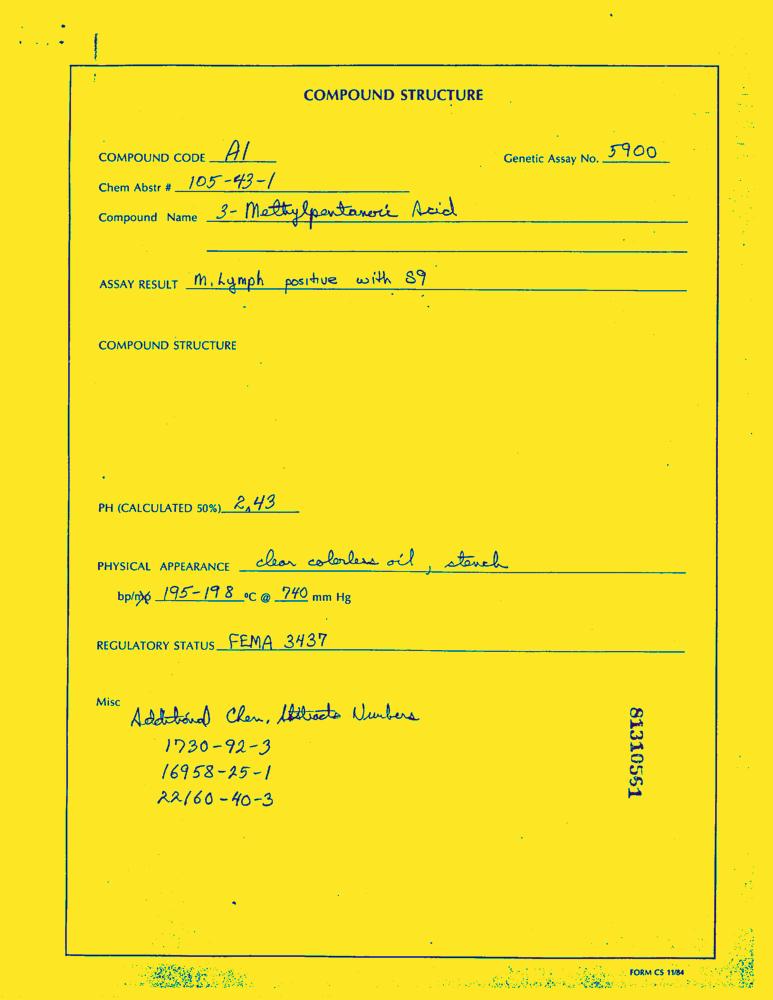 COMPOUND STRUCTURE
COMPOUND CODE A1
Genetic Assay No. 5900
Chem Abstr # 105-43-1
Compound Name 3-Methylpentanoic Acid
ASSAY RESULT M. Lymph positive with S9
COMPOUND STRUCTURE
PH (CALCULATED 50%) 2.43
PHYSICAL APPEARANCE clear colorless oil, stench
bp/mp 195-198 °C @ 740 mm Hg
REGULATORY STATUS FEMA 3437
Misc
Additional Chem. Abstracts Numbers
1730-92-3
16958-25-1
22160-40-3
81310551
FORM CS 11/84